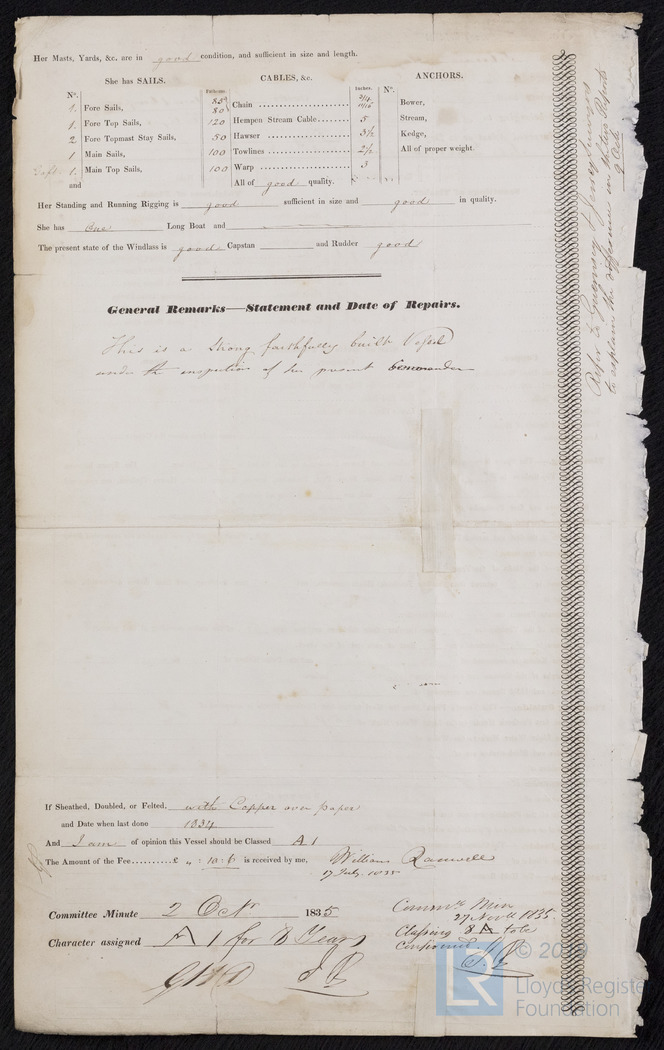 Her Masts, Yards, &c. are in good condition, and sufficient in size and length.
She has SAILS.
CABLES, &c.
ANCHORS.
Nº.
Fathoms.
Inches.
Nº.
1. Fore Sails,
85
80
Chain
Bower,
1. Fore Top Sails,
120
Hempen Stream Cable
5
Stream,
2 Fore Topmast Stay Sails,
50
Hawser
3½
Kedge,
1 Main Sails,
100
Towlines
2½
All of proper weight.
1. Main Top Sails,
100
Warp
3
and
All of good quality.
Her Standing and Running Rigging is good sufficient in size and good in quality.
She has One Long Boat and
The present state of the Windlass is good Capstan and Rudder good
General Remarks—Statement and Date of Repairs.
This is a strong faithfully built Vessel
under the inspection of her present Commander
If Sheathed, Doubled, or Felted, with Copper over paper
and Date when last done 1834
And I am of opinion this Vessel should be Classed A 1
The Amount of the Fee...........£ „ : 10 : 6 is received by me,
William
17 July 1835
Committee Minute 2 Octr 1835
Character assigned A 1 for 8 Years
Committe Min
27 Novr 1835
Classing 8 A to be
Confirmed
Refer to Guernsey & Jersey
to explain the difference in yr Reports
9 Octr
© 20
LR
Lloyd's Register
Foundation